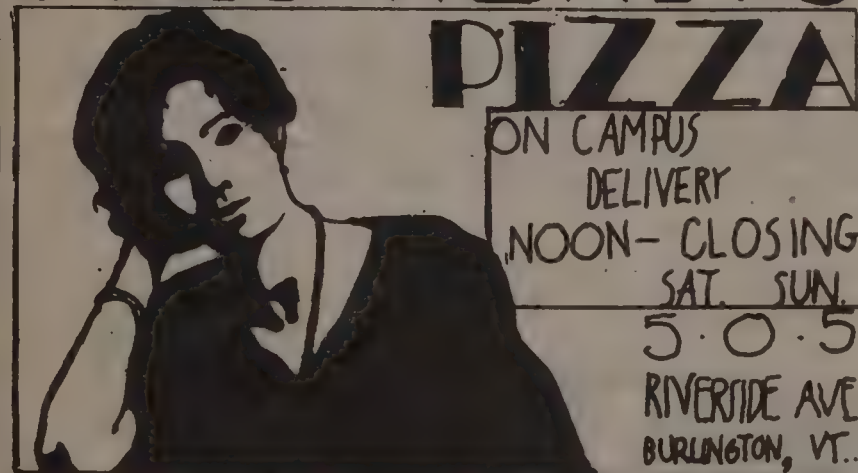 PIZZA
ON CAMPUS
DELIVERY
NOON - CLOSING
SAT. SUN.
5·0·5
RIVERSIDE AVE
BURLINGTON, VT..